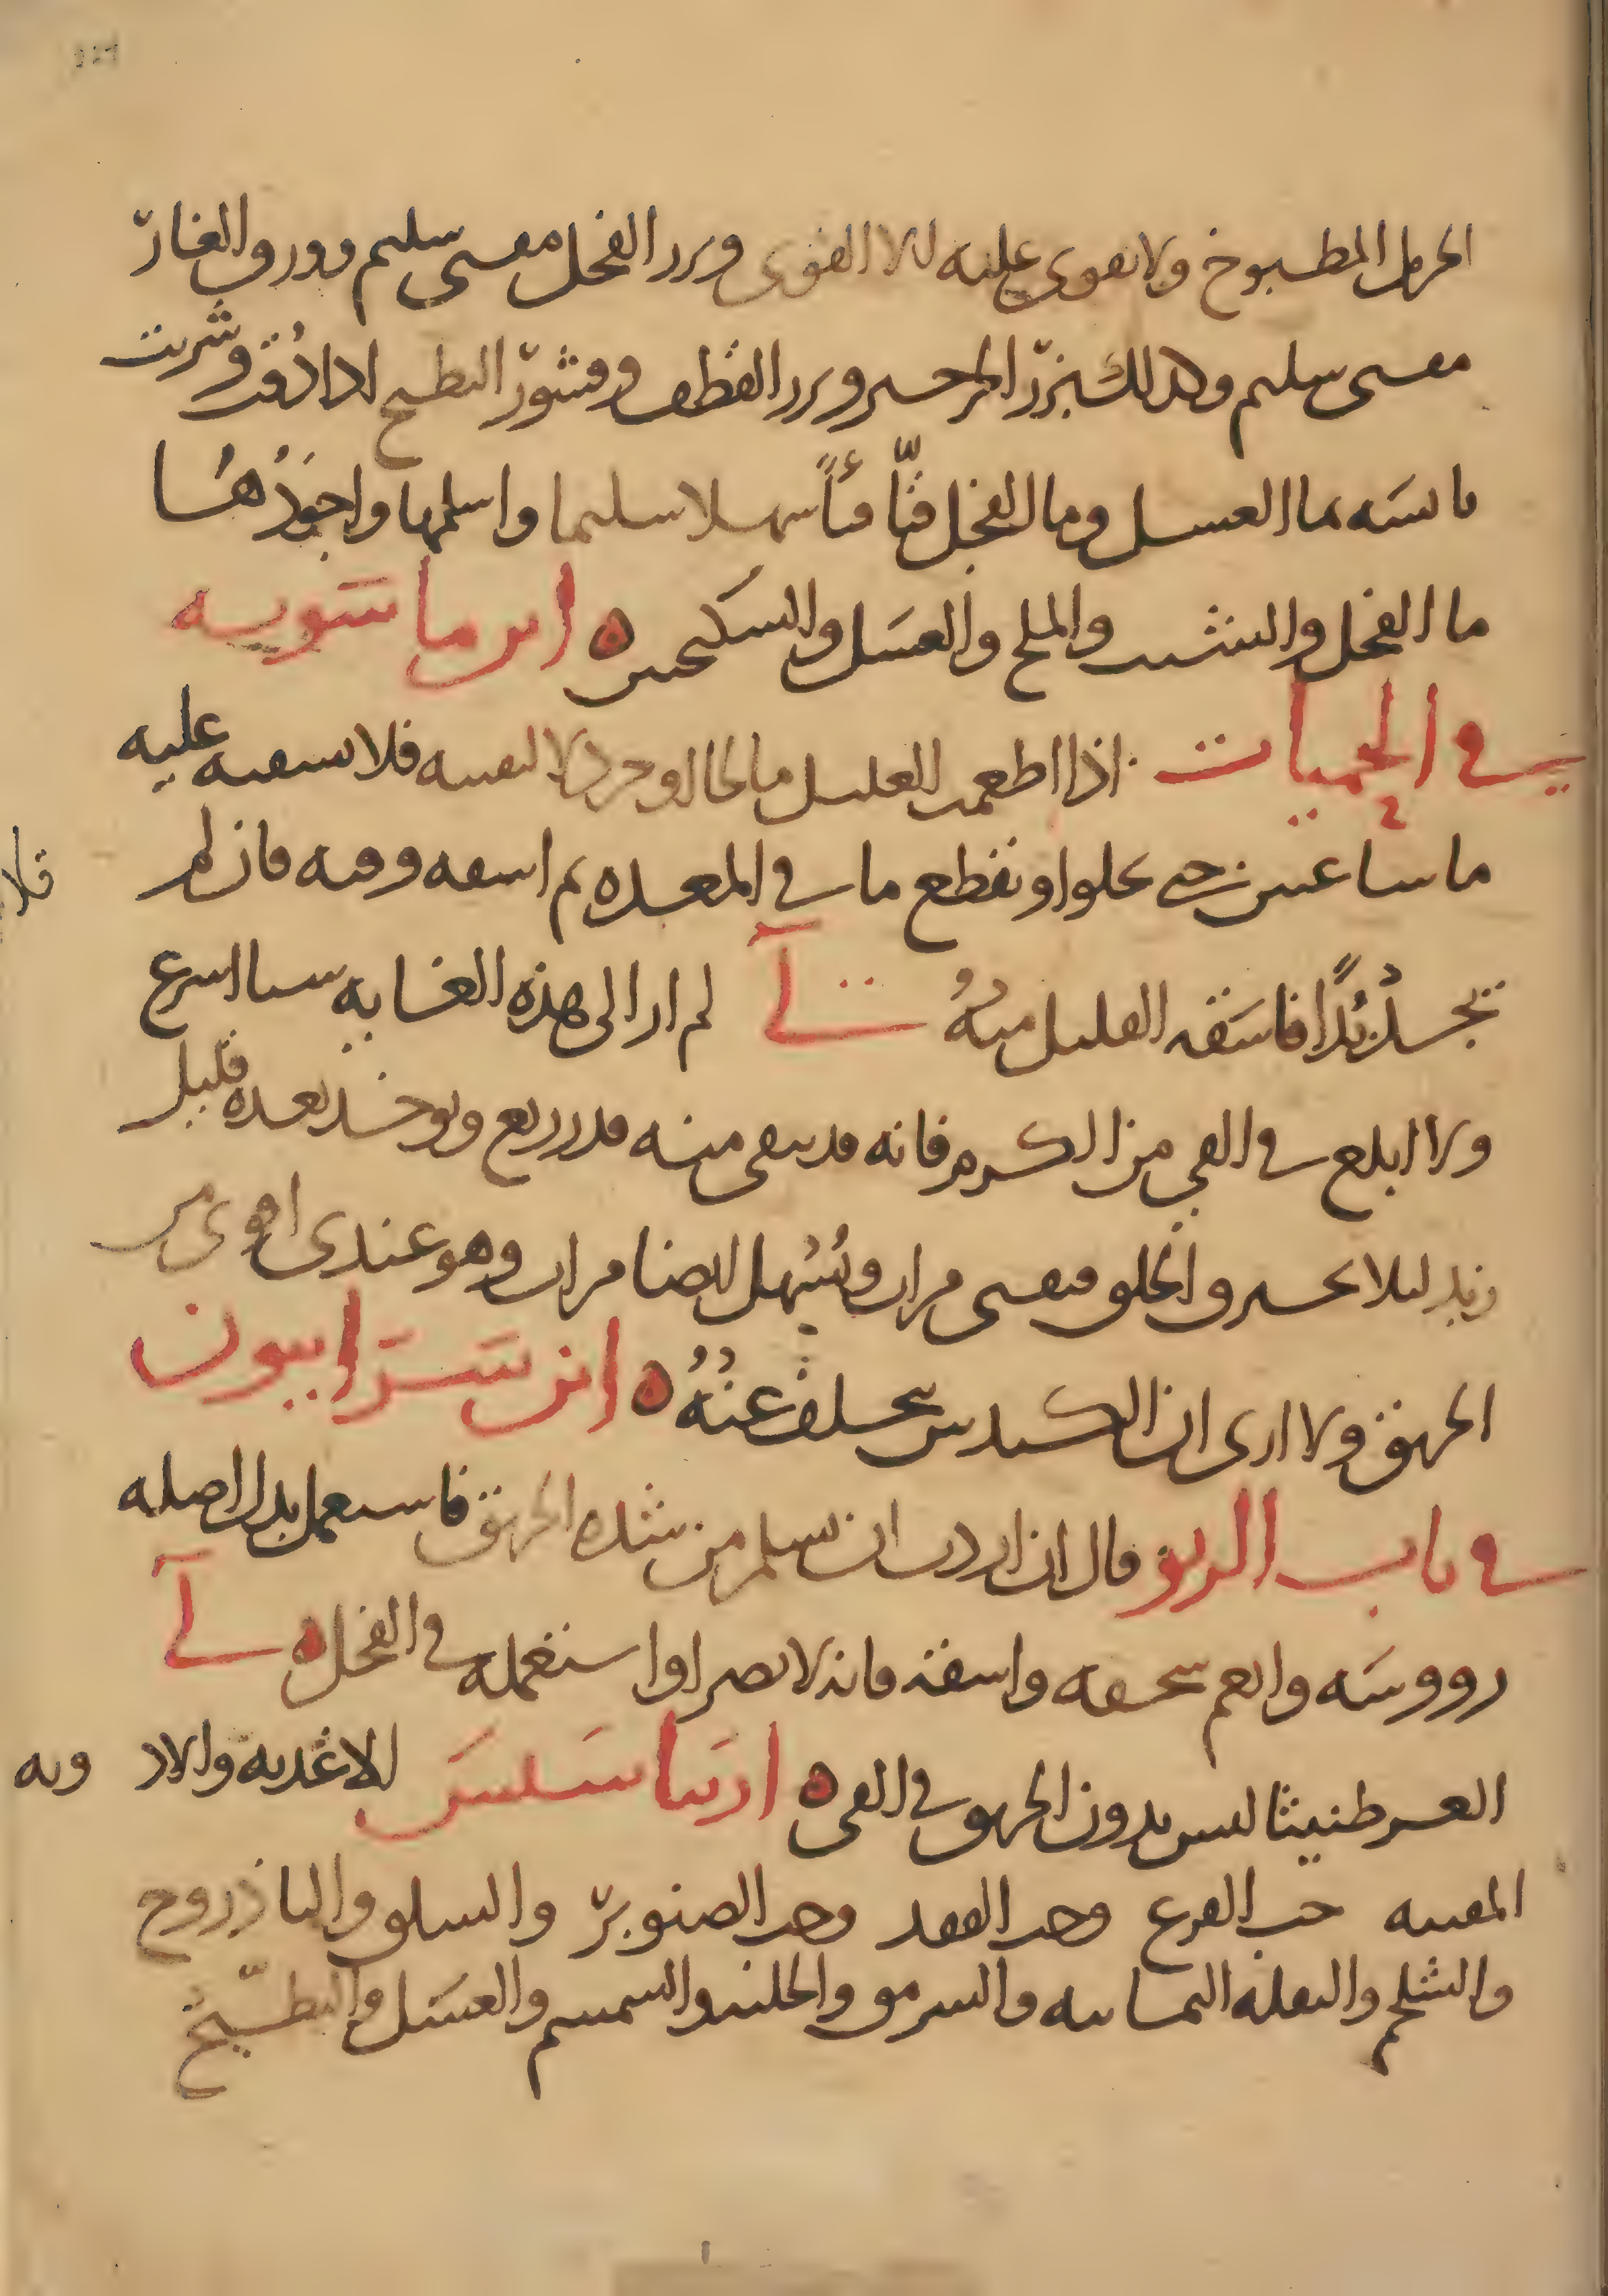 الحرمل المطبوخ ولا يقوى عليه الا القوى وبزر الفجل مقيى سليم وورق الغار
مقيى سليم وكذلك بزر الجرجير وبزر القطف وقشور البطيخ اذا دُقت وشربت
يابسَه بماء العسل وماء الفجل قيّاً سهلا سليما واسلمها واجودُها
ماء الفجل والشبث والملح والعسَل والسكنجبين ه ابن ماسَويه
في الحميات اذا اطعمت العليل مالحا او خردلا لتقييه فلا تسقيه عليه
ماء ساعتين حتى يحلوا وتقطع ما في المعده ثم اسقه وقيه فان لم
تجد بُدّاً فاسَقه القليل منهُ لي لم ار الى هذه الغايه شيا اسرع
ولا ابلغ في القي من الكرمر فانه قد يسقى منه قدر ربع ويوخذ بعده قليل
زبد ليلا يحسر والحلو فيقيى مرات ويُسْهل ايضا مرات وهو عندي اقوى من
الخربق ولا ارى ان الكندس يتخلف عنهُ ه ابن سَرَابيون
في باب الربو قال ان اردت ان تسلم من شده الخربق فاستعمل بدل اصله
رووسَه وانعم سحقه واسقه فانه لا يضر او استعمله في الفجل ه لي
العرطنيثا ليس بدون الخربق في القى ه اربياسَيس الاغذيه والادويه
المقييه حب القرع وحب الفقد وحب الصنوبر والسلق والباذروج
والشلجم والبقله اليمانيه والسرمق والحلبه والسمسم والعسَل والبطّيخ